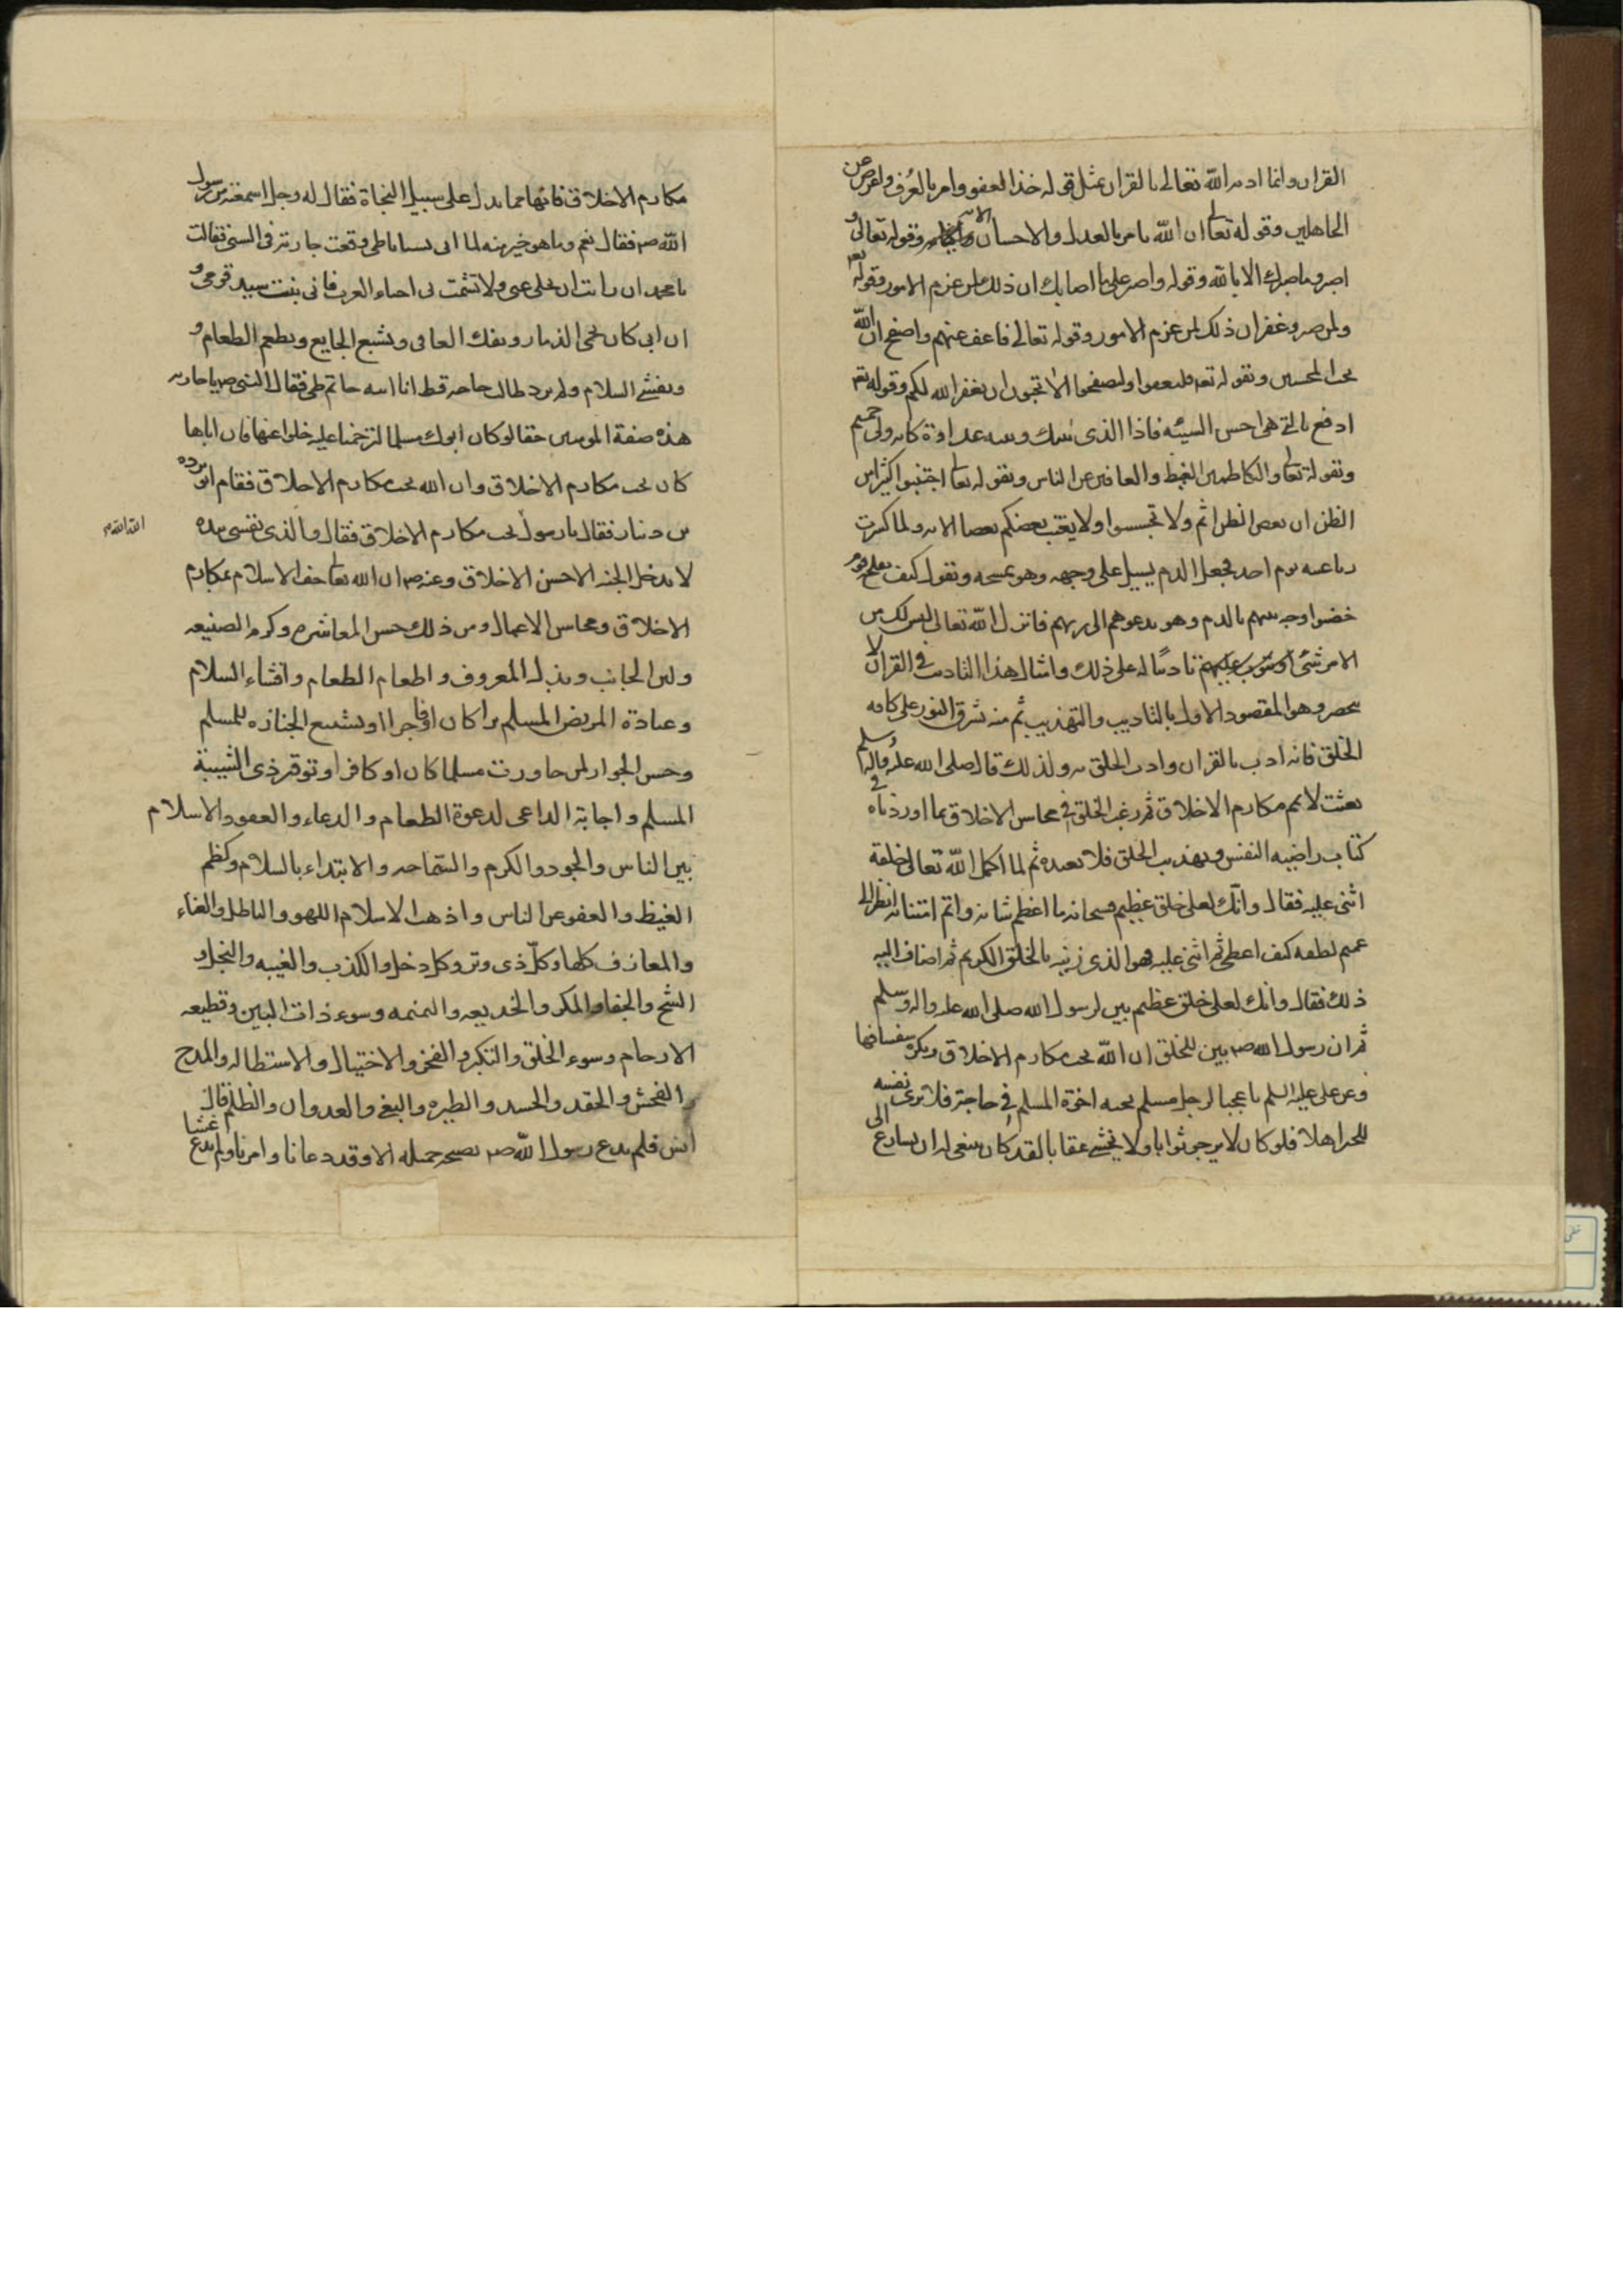 القران وانما ادبه الله تعالى بالقران بمثل قوله خذ العفو وامر بالعرف واعرض عن
الجاهلين وقوله تعالى ان الله يامر بالعدل والاحسان الايه وقوله تعالى و
اصبر وما صبرك الا بالله وقوله واصبر على ما اصابك ان ذلك من عزم الامور وقوله تعه
ولمن صبر وغفر ان ذلك لمن عزم الامور وقوله تعالى فاعف عنهم واصفح ان الله
يحب المحسنين وبقوله تعه وليعفوا وليصفحوا الا تحبون ان يغفر الله لكم وقوله تعه
ادفع بالتي هي احسن السيئه فاذا الذي بينك وبينه عداوة كانه ولي حميم
وبقوله تعالى والكاظمين الغيظ والعافين عن الناس وبقوله تعالى اجتنبوا كثيرا من
الظن ان بعض الظن اثم ولا تجسسوا ولا يغتب بعضكم بعضا الايه ولما كسرت
رباعيته يوم احد فجعل الدم يسيل على وجهه وهو يمسحه ويقول كيف يفلح قوم
خضبوا وجه نبيهم بالدم وهو يدعوهم الى ربهم فانزل الله تعالى ليس لك من
الامر شئ او يتوب عليهم تاديبا له على ذلك وامثال هذا التاديب في القران لا
يحصر وهو المقصود الاول بالتاديب والتهذيب ثم منه يشرق النور على كافه
الخلق فانه ادب بالقران وادب الخلق به ولذلك قال صلى الله عليه واله وسلم
بعثت لاتمم مكارم الاخلاق ثم رغب الخلق في محاسن الاخلاق بما اوردناه في
كتاب راضيه النفس وتهذيب الخلق فلا نعيده ثم لما اكمل الله تعالى خلقه
اثنى عليه فقال وانك لعلى خلق عظيم فسبحانه ما اعظم شانه واتم امتنانه انظر الى
عميم لطفه كيف اعطى ثم اثنى عليه فهو الذي زينه بالخلق الكريم ثم اضاف اليه
ذلك فقال وانك لعلى خلق عظيم بين لرسول الله صلى الله عليه واله وسلم
ثم ان رسول الله صم بين للخلق ان الله يحب مكارم الاخلاق ويكره سفسافها
وعن علي عليه السلم يا عجبا لرجل مسلم يجيئه اخوه المسلم في حاجة فلا يرى نفسه
للخير اهلا فلو كان لا يرجو ثوابا ولا يخشى عقابا لقد كان ينبغي له ان يسارع الى
مكارم الاخلاق فانها مما يدل على سبيل النجاة فقال له رجل اسمعته من رسول
الله صم فقال نعم وما هو خير منه لما اتى بسبايا طي وقعت جارية في السبي فقالت
يا محمد ان رايت ان تخلي عني ولا تشمت بي احياء العرب فاني بنت سيد قومي و
ان ابي كان يحمي الذمار ويفك العاني ويشبع الجايع ويطعم الطعام و
ويفشي السلام ولم يرد طالب حاجه قط انا ابنه حاتم طي فقال النبي صم يا جاريه
هذه صفة المومنين حقا لو كان ابوك مسلما لترحمنا عليه خلوا عنها فان اباها
كان يحب مكارم الاخلاق وان الله يحب مكارم الاخلاق فقام ابو برده
بن دينار فقال يا رسول يحب مكارم الاخلاق فقال والذي نفسي بيده
الله الله م
لا يدخل الجنه الا حسن الاخلاق وعنه صم ان الله تعالى حف الاسلام بمكارم
الاخلاق ومحاسن الاعمال ومن ذلك حسن المعاشره وكرم الصنيعه
ولين الجانب وبذل المعروف واطعام الطعام وافشاء السلام
وعيادة المريض المسلم برا كان او فاجرا او تشييع الجنازه للمسلم
وحسن الجوار لمن جاورت مسلما كان او كافرا وتوقير ذي الشيبة
المسلم واجابة الداعي لدعوة الطعام والدعاء والعفو والاسلام
بين الناس والجود والكرم والسماحه والابتداء بالسلام وكظم
الغيظ والعفو عن الناس واذهب الاسلام اللهو والباطل والغناء
والمعازف كلها وكل ذي وتر وكل دخل والكذب والغيبه والبخل و
الشح والجفا والمكر والخديعه والنميمه وسوء ذات البين وقطيعه
الارحام وسوء الخلق والتكبر والفخر والاختيال والاستطاله والمدح
والفحش والحقد والحسد والطيره والبغي والعدوان والظلم قال
انس فلم يدع رسول الله صم نصيحه جميله الا وقد دعانا وامرنا ولم يدع غشا